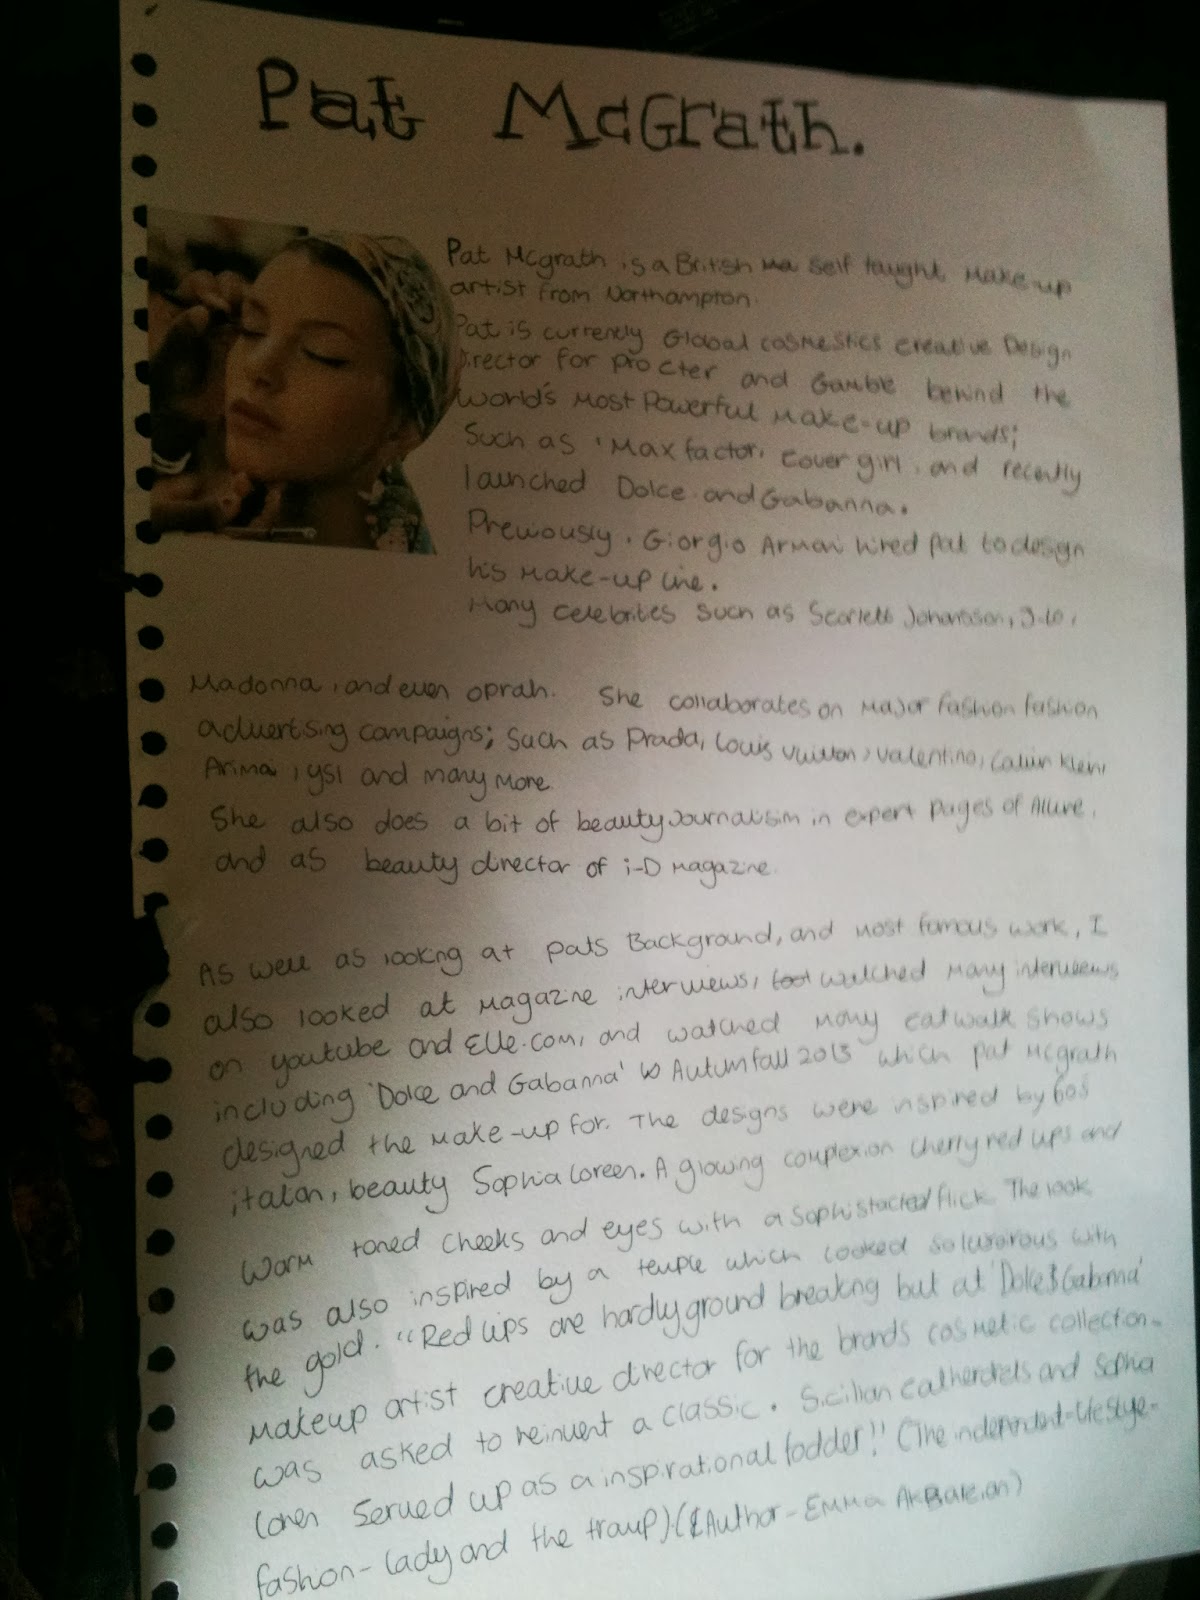 Pat McGrath.
Pat Mcgrath is a British self taught Make-up
artist from Northampton.
Pat is currently Global cosmestics creative Design
Director for procter and Gamble behind the
World's Most Powerful Make-up brands;
Such as 'Max factor, cover girl, and recently
launched Dolce and Gabanna.
Previously, Giorgio Armani hired pat to design
his Make-up line.
Many celebrites such as Scarlett Johansson, J-lo,
Madonna, and even oprah. She collaborates on Major fashion fashion
advertising campaigns; such as Prada, Louis Vuitton, Valentino, Calvin Klein,
Armai, ysl and many more.
She also does a bit of beauty Journalisim in expert pages of Allure,
and as beauty director of i-D Magazine.
As well as looking at pats Background, and Most famous work, I
also looked at Magazine interviews, watched Many interviews
on youtube and Elle.com, and watched Many catwalk shows
including 'Dolce and Gabanna' Autum fall 2013 which pat Mcgrath
designed the Make-up for. The designs were inspired by 60s
italan, beauty Sophia Loreen. A glowing complexion cherry red lips and
Warm toned cheeks and eyes with a sophistacted flick. The look
was also inspired by a temple which looked so with
the gold. "Red lips are hardly ground breaking but at 'Dolce & Gabanna'
Makeup artist creative director for the brands cosmetic collection-
was asked to reinvent a classic. Sicilian catherdrels and Sophia
Loren served up as a inspirational fodder!" (The independent-lifestyle-
fashion-Lady and the tramp) (Author-Emma Akbareian)